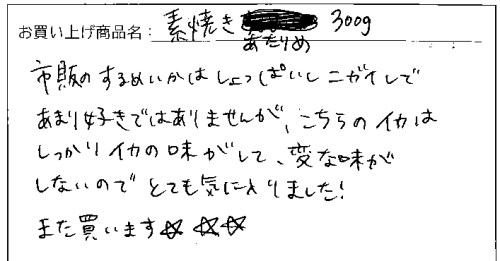 お買い上げ商品名： 素焼き 300g
あたりめ
市販のするめいかはしょっぱいしニガイしで
あまり好きではありませんが、こちらのイカは
しっかりイカの味がして、変な味が
しないのでとても気に入りました！
また買います☆ ☆☆